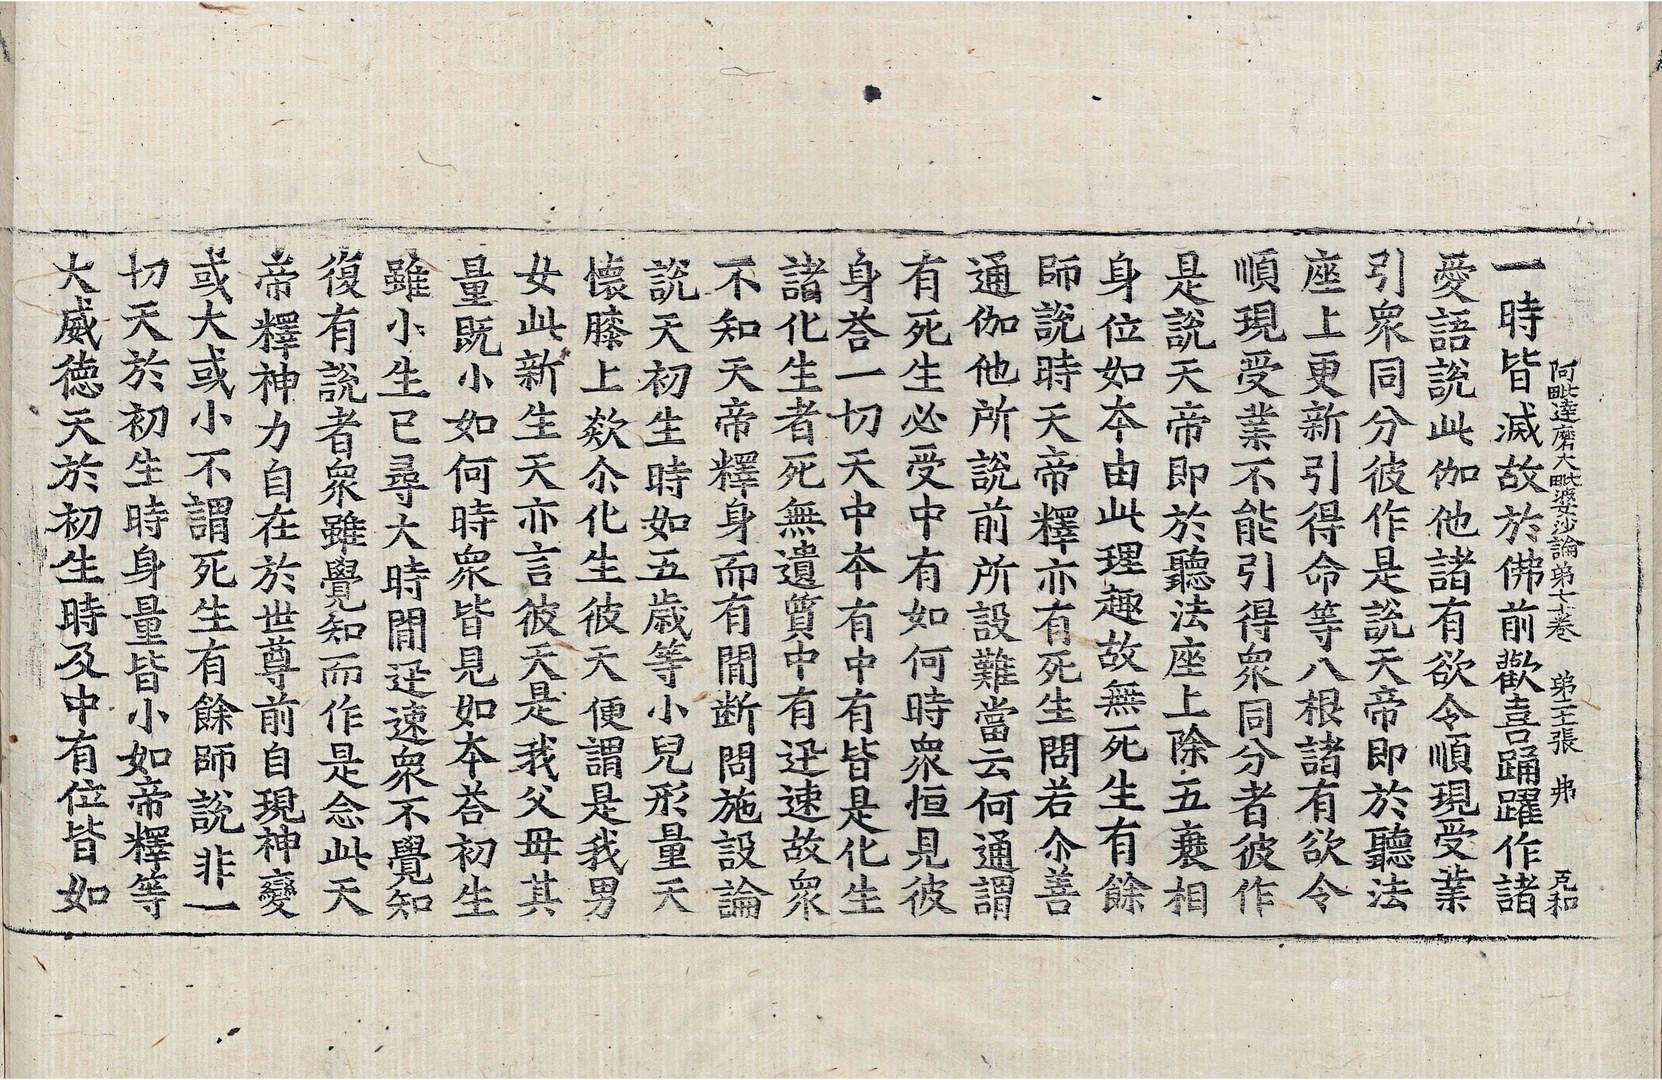 阿毗達磨大毗婆沙論第七十卷 第二張 弗 克和
一時皆滅故於佛前歡喜踊躍作諸
愛語說此伽他諸有欲令順現受業
引衆同分彼作是說天帝即於聽法
座上更新引得命等八根諸有欲令
順現受業不能引得衆同分者彼作
是說天帝即於聽法座上除五衰相
身位如本由此理趣故無死生有餘
師說時天帝釋亦有死生問若尒善
通伽他所說前所設難當云何通謂
有死生必受中有如何時衆恒見彼
身荅一切天中本有中有皆是化生
諸化生者死無遺質中有迅速故衆
不知天帝釋身而有間断問施設論
說天初生時如五歲等小兒形量天
懷膝上欻尒化生彼天便謂是我男
女此新生天亦言彼天是我父母其
量旣小如何時衆皆見如本荅初生
雖小生已尋大時間迅速衆不覺知
復有說者衆雖覺知而作是念此天
帝釋神力自在於世尊前自現神變
或大或小不謂死生有餘師說非一
切天於初生時身量皆小如帝釋等
大威德天於初生時及中有位皆如